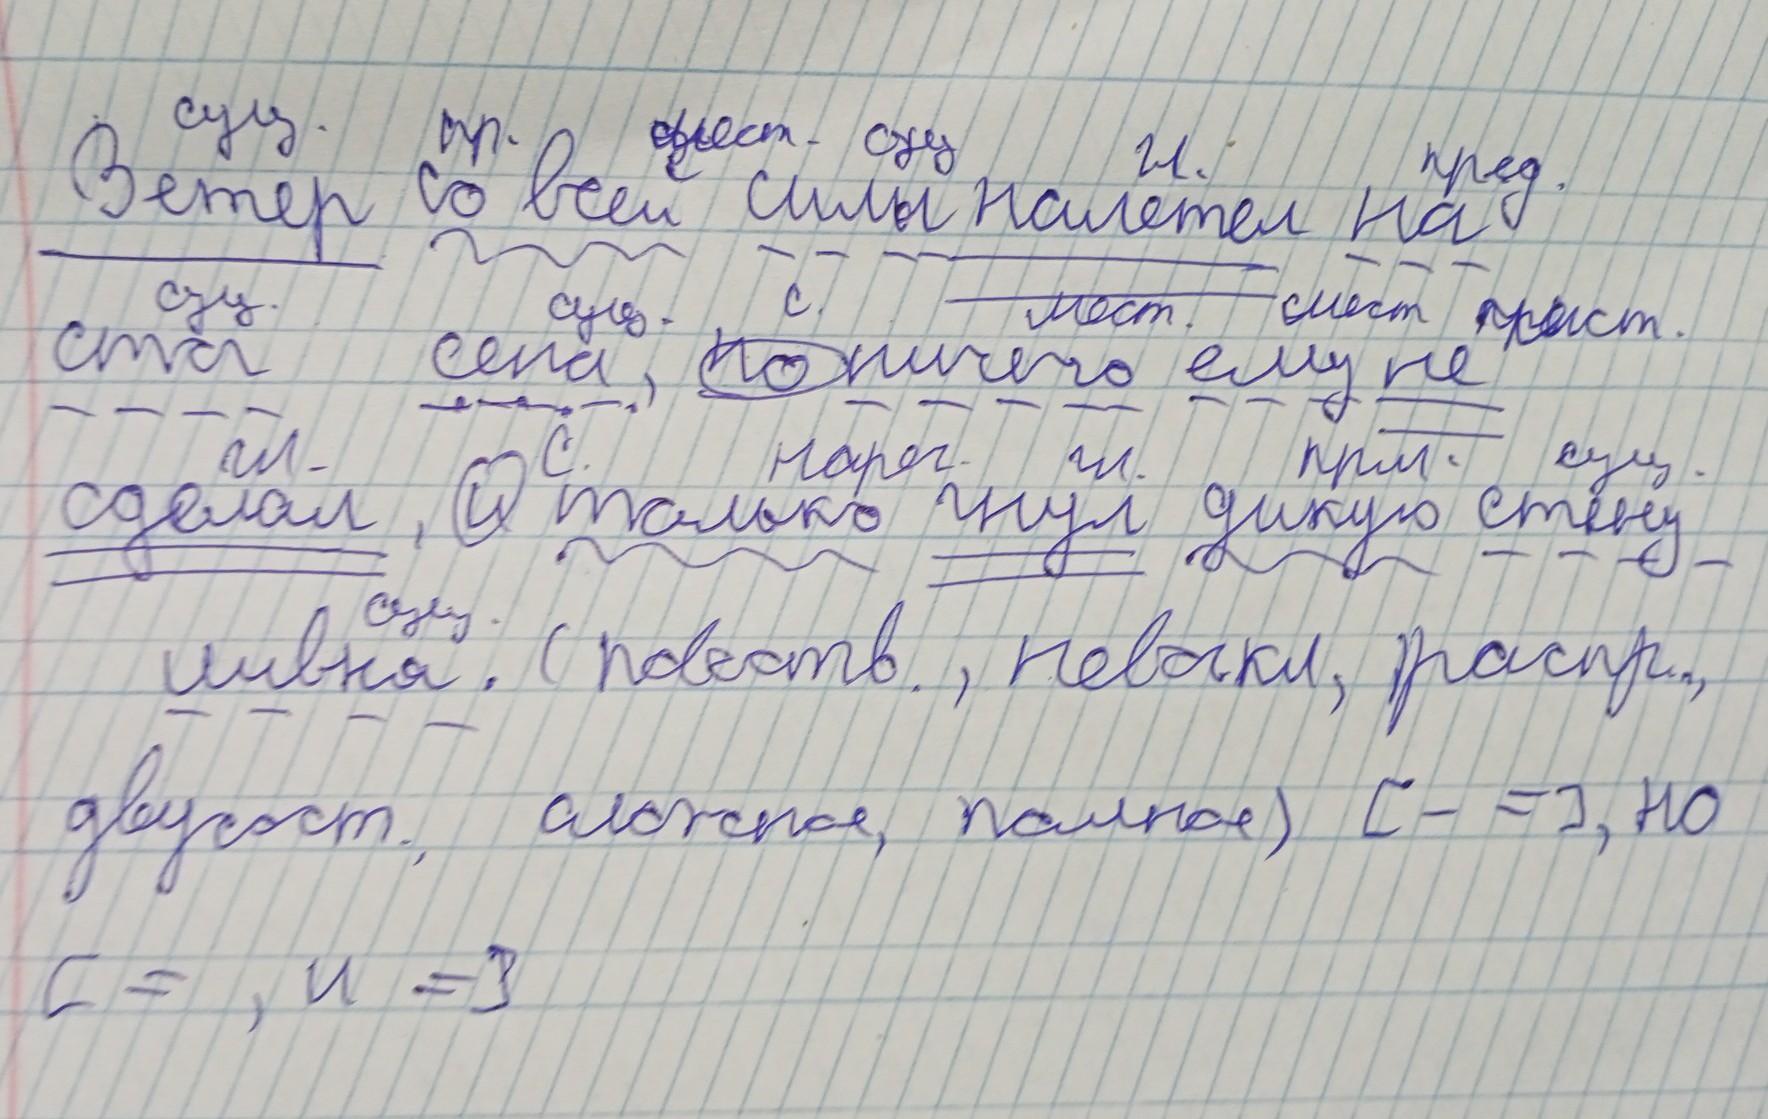 сущ. пр. мест. сущ гл. пред.
Ветер со всей силы налетел на
сущ. сущ. с. мест. мест част.
стог сена, но ничего ему не
гл. с. нареч. гл. прил. сущ.
сделал, и только гнул дикую стену
сущ.
ливня. (повеств., невоскл, распр.,
двусост., сложное, полное) [- =], но
[= , и =]